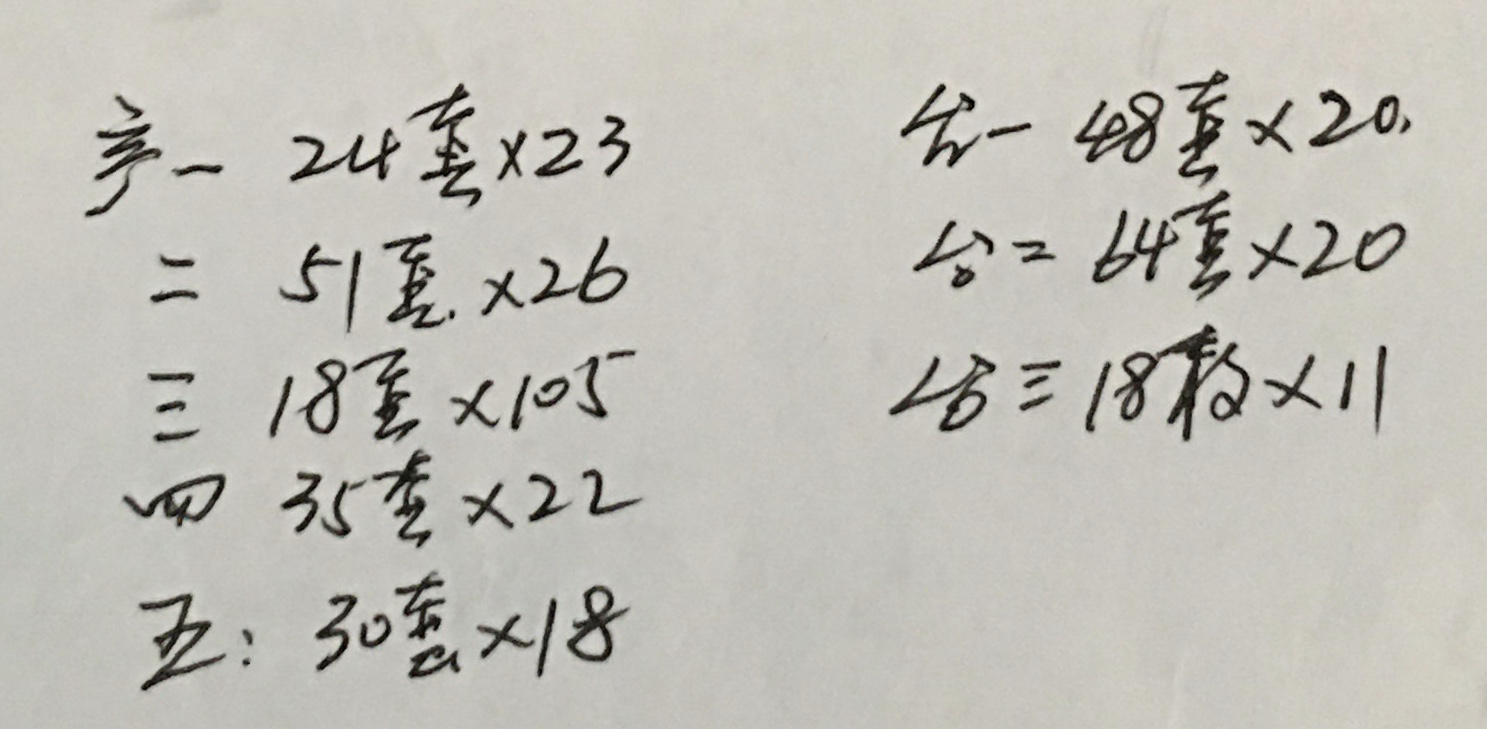 字一 24套×23
二 51套.×26
三 18套×105
四 35套×22
五: 30套×18
台一 48套×20.
台二 64套×20
台三 18枚×11